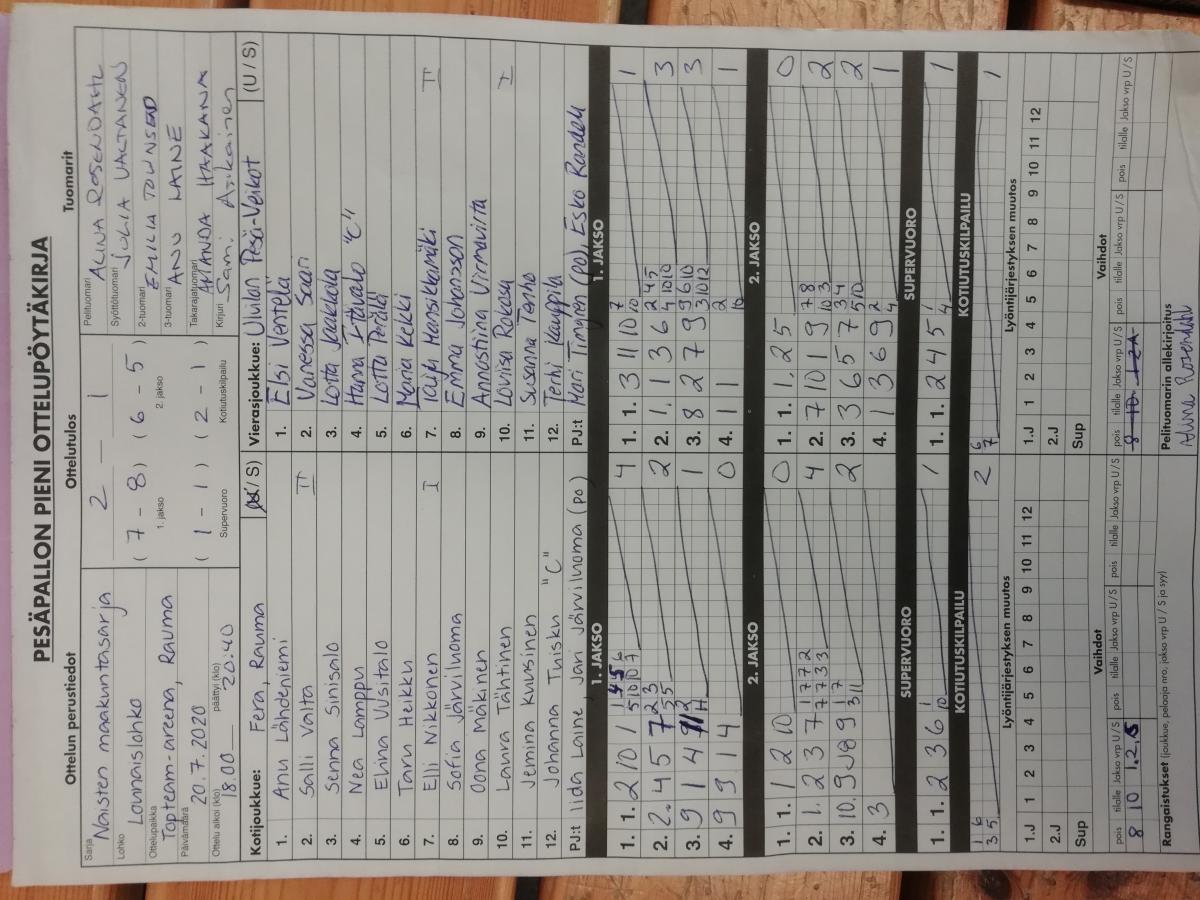 PESÄPALLON PIENI OTTELUPÖYTÄKIRJA
Ottelun perustiedot
Sarja Naisten maakuntasarja
Lohko Lounaislohko
Ottelupaikka Topteam-areena, Rauma
Päivämäärä 20.7.2020
Ottelu alkoi (klo) 18.00 päättyi (klo) 20.40
Ottelutulos
2 — 1
( 7 - 8 ) ( 6 - 5 )
1. jakso 2. jakso
( 1 - 1 ) ( 2 - 1 )
Supervuoro Kotiutuskilpailu
Tuomarit
Pelituomari ALINA ROSENDAHL
Syöttötuomari JULIA VALTANEN
2-tuomari EMILIA TOWNSEND
3-tuomari ANU LAINE
Takarajatuomari AMANDA HAAKANA
Kirjuri Sami Asikainen
Kotijoukkue: Fera, Rauma (U / S)
1. Anu Lähdeniemi
2. Salli Valta II
3. Senna Sinisalo
4. Nea Lamppu
5. Elina Uusitalo
6. Taru Heikku
7. Elli Nikkonen I
8. Sofia Järviluoma
9. Oona Mäkinen
10. Laura Tähtinen
11. Jemina Kuusinen
12. Johanna Tuisku "C"
PJ:t Iida Laine Jari Järviluoma (po)
Vierasjoukkue: Ulvilan Pesä-Veikot (U / S)
1. Elsi Ventelä
2. Vanessa Saari
3. Lotta Jaakkola
4. Hanna Itävalo "C"
5. Lotta Perälä
6. Maria Kekki
7. Teija Mansikkamäki II
8. Emma Johansson
9. Annastiina Virmavirta
10. Loviisa Rokosa I
11. Susanna Tanho
12. Terhi Kauppila
PJ:t Mari Timgren (po), Esko Randell
1. JAKSO 1. JAKSO
1. 1. 2 10 1 4
2. 2. 4 5 7 2
3. 9 1 4 1
4. 9 3 1 4 0
1. 1. 3 11 10 1
2. 1. 1 3 6 3
3. 8 2 7 9 3
4. 0 1 1 1
2. JAKSO 2. JAKSO
1. 1. 1 2 0 0
2. 1. 2 3 7 4
3. 10. 9 1 2
4. 3
1. 1. 1. 2 5 0
2. 7 10 1 9 2
3. 3 6 5 7 2
4. 1 3 6 9 1
SUPERVUORO SUPERVUORO
1. 1. 2 3 6 1
1. 1. 2 4 5 1
KOTIUTUSKILPAILU KOTIUTUSKILPAILU
1 6
3 5 2
6
7 1
Lyöntijärjestyksen muutos
1.J 1 2 3 4 5 6 7 8 9 10 11 12
2.J
Sup
Lyöntijärjestyksen muutos
1.J 1 2 3 4 5 6 7 8 9 10 11 12
2.J
Sup
Vaihdot
pois tilalle Jakso vrp U / S pois tilalle Jakso vrp U / S pois tilalle Jakso vrp U / S
8 10 1.2.S
Vaihdot
pois tilalle Jakso vrp U / S pois tilalle Jakso vrp U / S pois tilalle Jakso vrp U / S
8 10 1 2A
Rangaistukset (joukkue, pelaaja nro, jakso vrp U / S ja syy)
Pelituomarin allekirjoitus
Alina Rosendahl